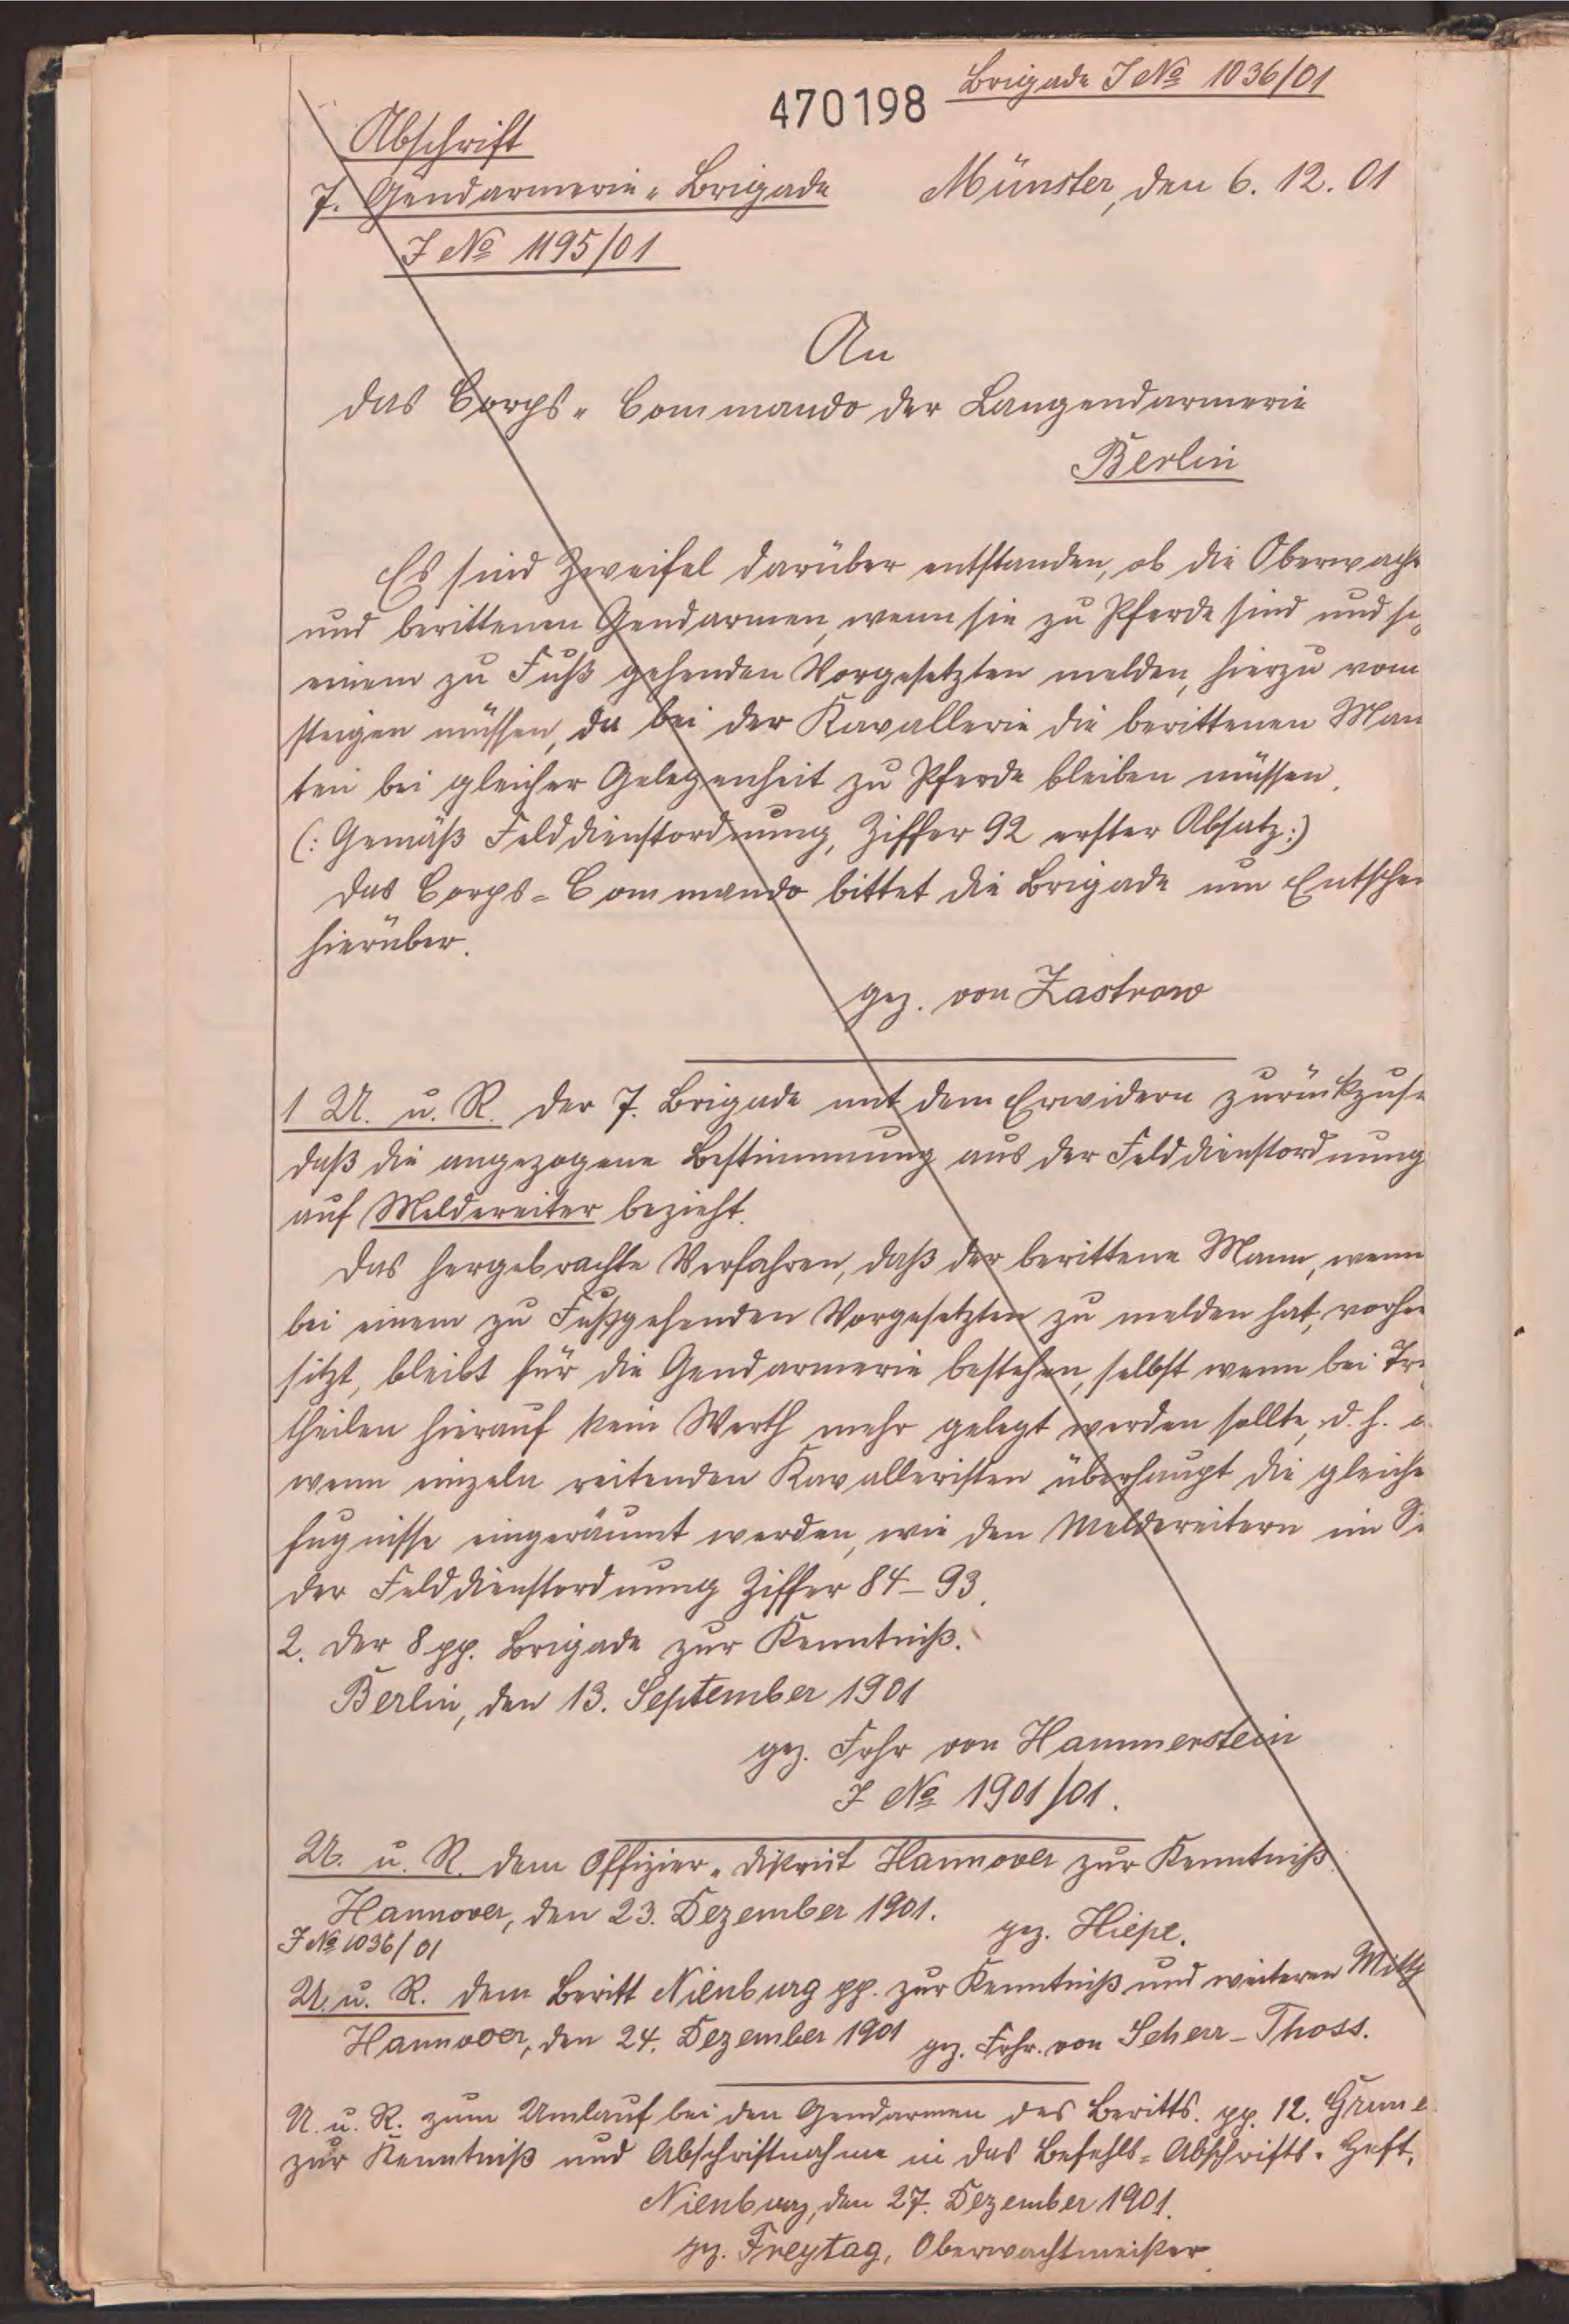 Brigade J № 1036/01
470198
Abschrift
7. Gendarmerie-Brigade Münster, den 6. 12. 01
J № 1195/01
An
das Corps-Commando der Langendarmerie
Berlin
Es sind Zweifel darüber entstanden, ob die Oberwacht
und berittenen Gendarmen, wenn sie zu Pferde sind und si
einem zu Fuß gehenden Vorgesetzten melden, hierzu vom
steigen müssen, da bei der Kavallerie die berittenen Man
ten bei gleicher Gelegenheit zu Pferde bleiben müssen.
(: Gemäß Felddienstordnung, Ziffer 92 erster Absatz:)
Das Corps-Commando bittet die Brigade um Entschei
hierüber.
gez. von Zastrow
1 U. u. R. der 7. Brigade mit dem Erwidern zurückzus
daß die angezogene Bestimmung aus der Felddienstordnung
auf Meldereiter bezieht.
Das hergebrachte Verfahren, daß der berittene Mann, wenn
bei einem zu Fußgehenden Vorgesetzten zu melden hat, vorher
sitzt, bleibt für die Gendarmerie bestehen, selbst wenn bei Tr
theilen hierauf kein Werth mehr gelegt werden sollte, d. h.
wenn einzeln reitenden Kavalleristen überhaupt die gleiche
fugnisse eingeräumt werden, wie den Meldereitern im Si
der Felddienstordnung Ziffer 84-93.
2. Der 8 pp. Brigade zur Kenntniß.
Berlin, den 13. September 1901
gez. Frhr von Hammerstein
J № 1901/01.
U. u. R. dem Offizier-Distrikt Hannover zur Kenntniß.
Hannover, den 23. Dezember 1901.
J № 1036/01 gez. Hiepe.
U. u. R. dem Beritt Nienburg pp. zur Kenntniß und weiteren Mitth
Hannover, den 24. Dezember 1901 gez. Frhr. von Scherr-Thoss.
U. u. R. zum Umlauf bei den Gendarmen des Beritts. pp. 12.
zur Kenntniß und Abschriftnahme in das Befehls-Abschrifts-Heft.
Nienburg, den 27. Dezember 1901.
gz. Freytag, Oberwachtmeister.